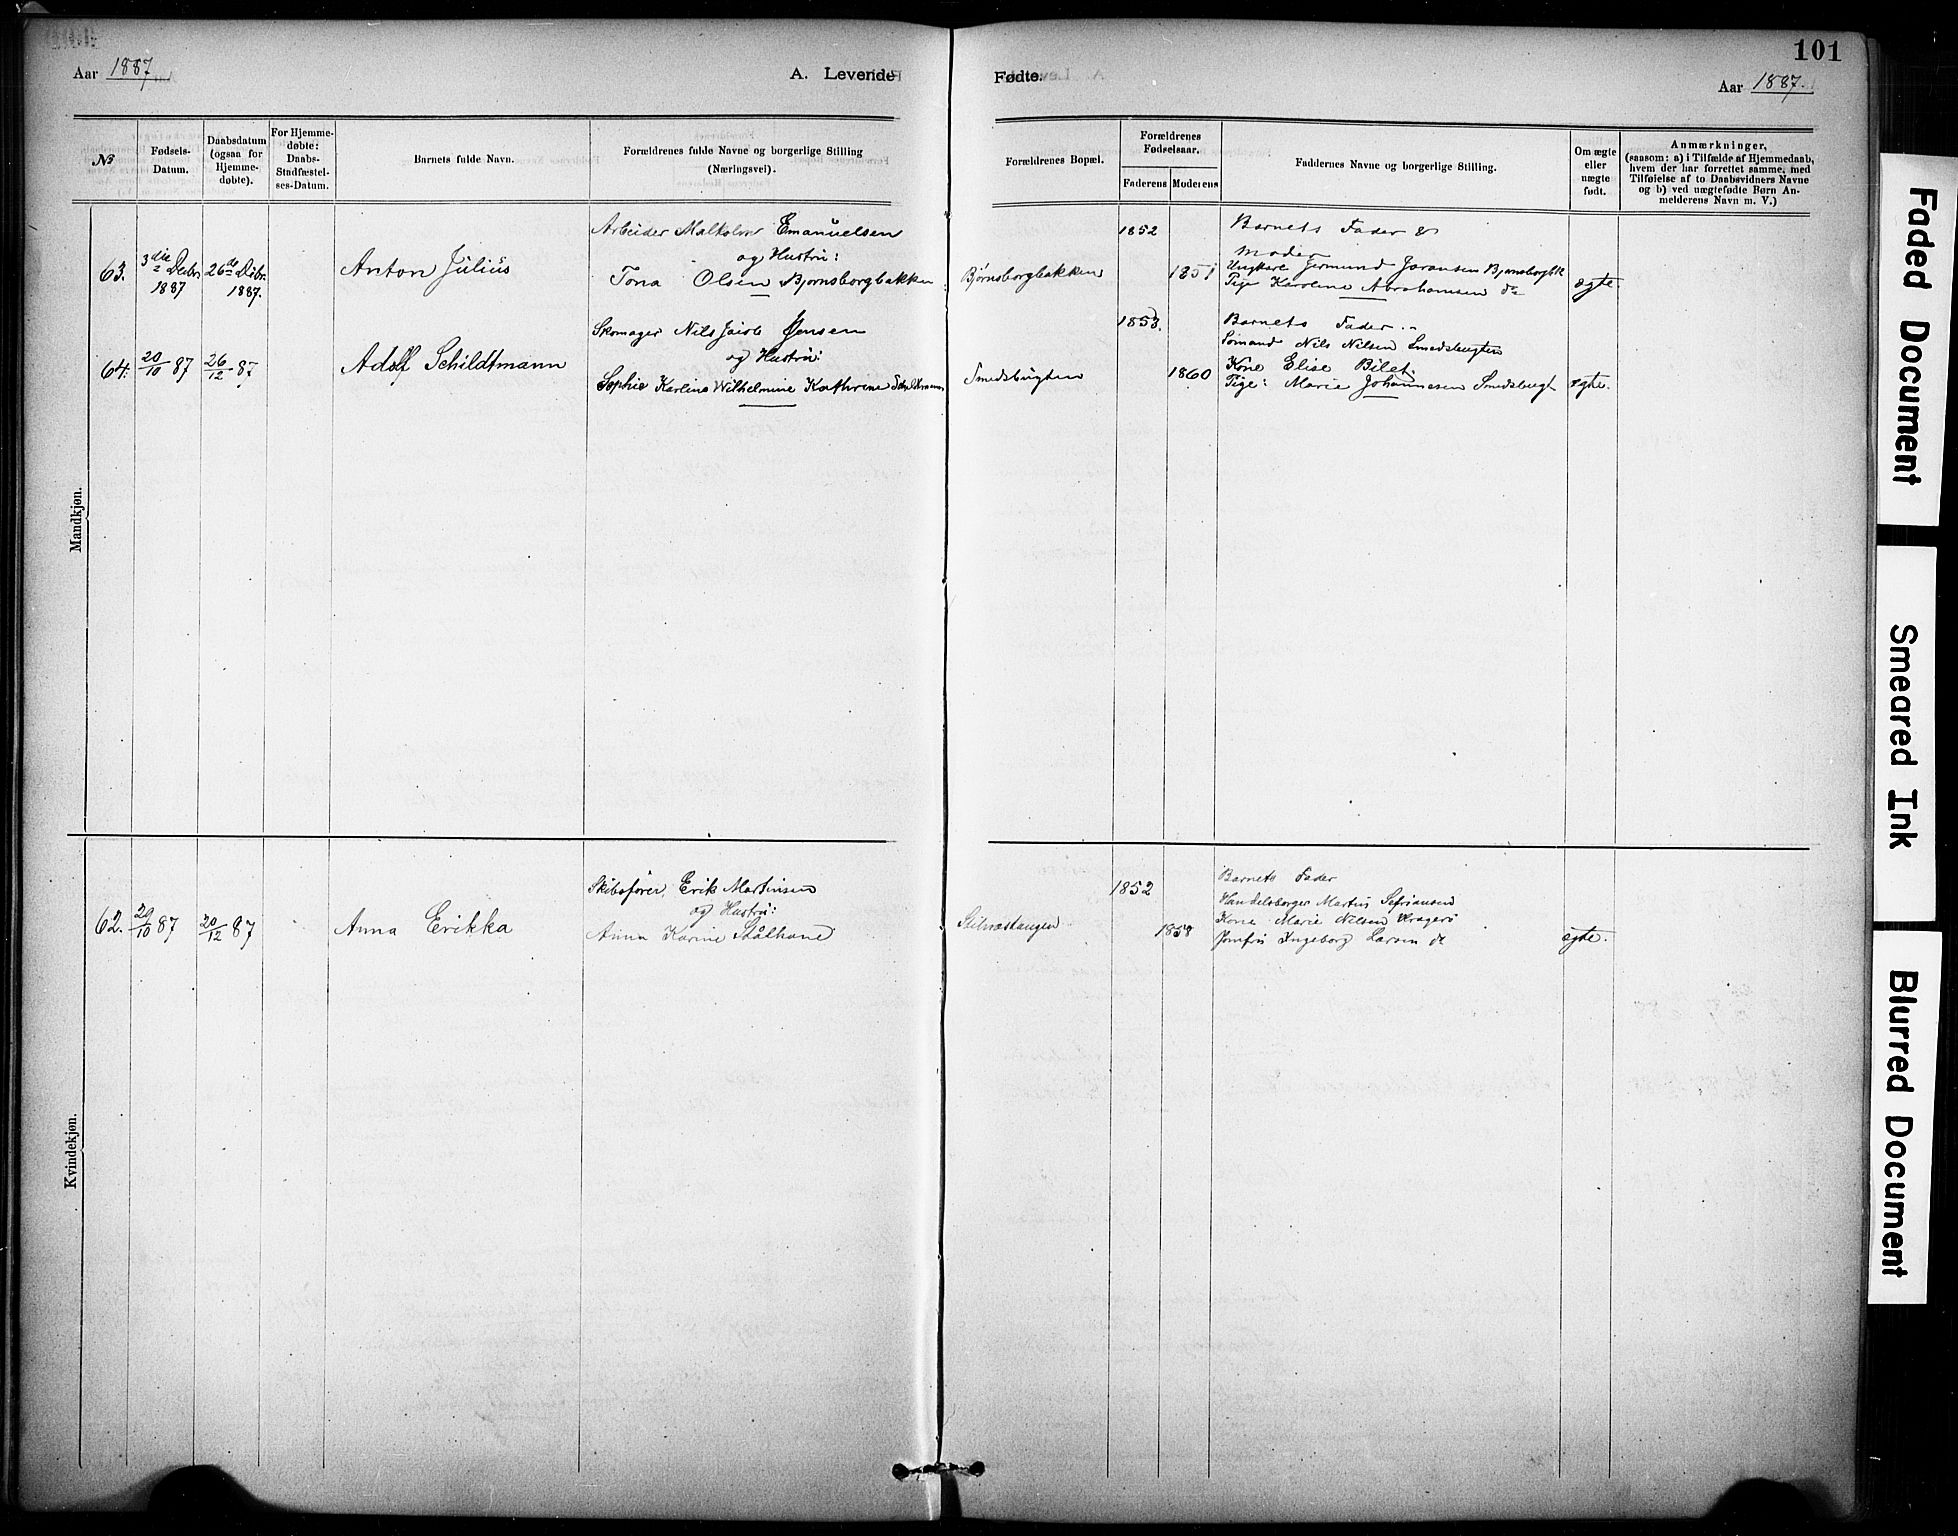 Aar 1887
A. Levende
No
Fødsels-
Datum.
Daabsdatum
(ogsaa for
Hjemme-
døbte).
For Hjemme-
døbte:
Daabs-
Stadfæstel-
ses-Datum.
Barnets fulde Navn.
Forældrenes fulde Navne og borgerlige Stilling
(Næringsvei).
Mandkjøn.
63.
3die
Decbr
1887
26de Dcbr.
1887.
Anton Julius
Arbeider Malkolm Emanuelsen
og Hustru:
Tona Olsen Bjørnsborgbakken
64.
20/10 87
26/12 87
Adolf Schildtmann
Skomager Nils Jacob Jensen
og Hustru:
Sophie Karline Wilhelmine Kathrine Schildtmann
Kvindekjøn.
62.
29/10 87
20/12 87
Anna Erikka
Skibsfører Erik Martinsen
og Hustru:
Anna Karine Stålhane
101
Fødte.
Aar 1887.
Forældrenes Bopæl.
Forældrenes
Fødselsaar.
Faderens
Moderens
Faddernes Navne og borgerlige Stilling.
Om ægte
eller
uægte
født.
Anmærkninger,
(saasom: a) i Tilfælde af Hjemmedaab,
hvem der har forrettet samme, med
Tilføielse af to Daabsvidners Navne
og b) ved uægtefødte Børn An-
melderens Navn m. V.)
Bjørnsborgbakken
1852
1851
Barnets Fader &
Moder
Ungkare Germund Joransen Bjørnsborgbk
Pige Karoline Abrahamsen do
ægte.
Smedsbugten
1853.
1860
Barnets Fader
Sømand Nils Nilsen Smedsbugten
Kone Elise Bilet.
Pige: Marie Johannesen Smedsbugt
ægte.
1852
1858
Barnets Fader
Handelsborger Martin Sefriansen
Kone Marie Nilsen Kragerø
Jomfru Ingeborg Larsen do
ægte.
Faded Document
Smeared Ink
Blurred Document